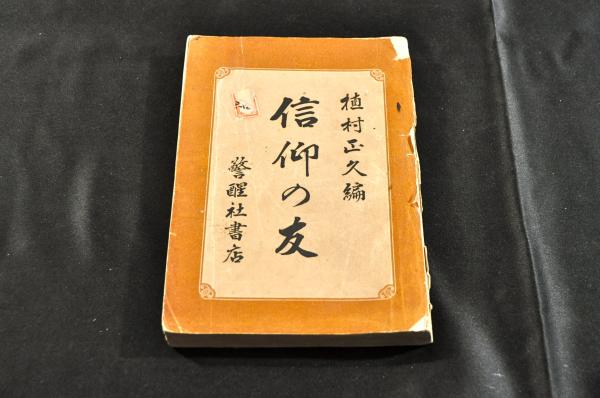 植村正久編
信仰の友
警醒社書店